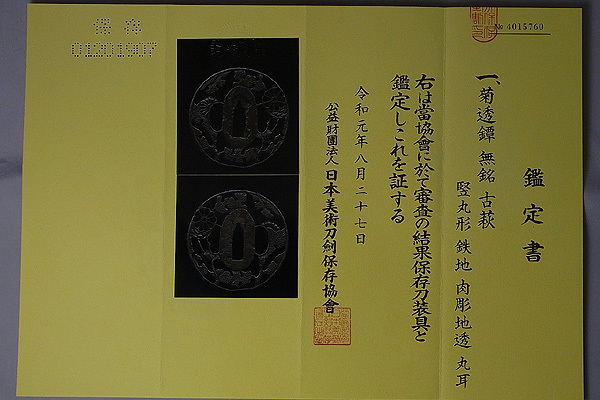 № 4015760
鑑定書
一、菊透鐔 無銘 古萩
竪丸形 鉄地 肉彫地透 丸耳
右は當協會に於て審査の結果保存刀装具と
鑑定しこれを証する
令和元年八月二十七日
公益財團法人 日本美術刀剣保存協會
01201907